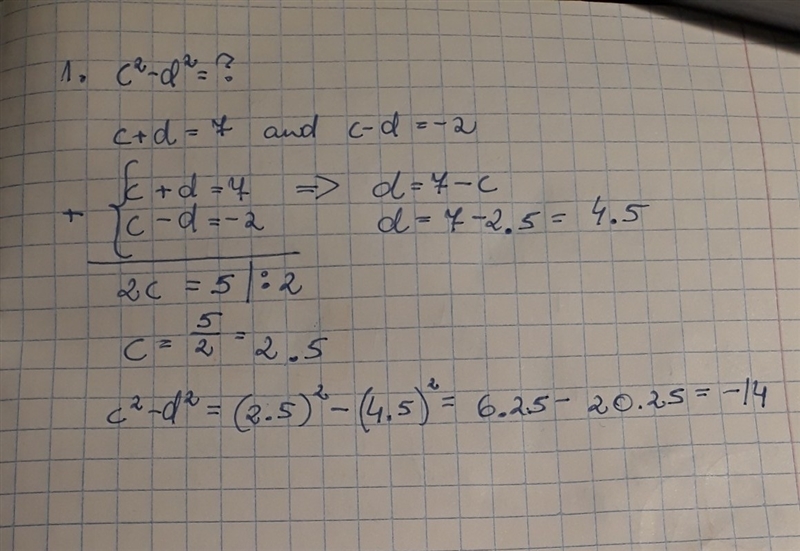 1. c²-d²=?
c+d=7 and c-d=-2
c+d=7 => d=7-c
+ { c-d=-2 d=7-2.5= 4.5
2c = 5 |:2
c = 5/2 = 2.5
c²-d² = (2.5)² - (4.5)² = 6.25 - 20.25 = -14